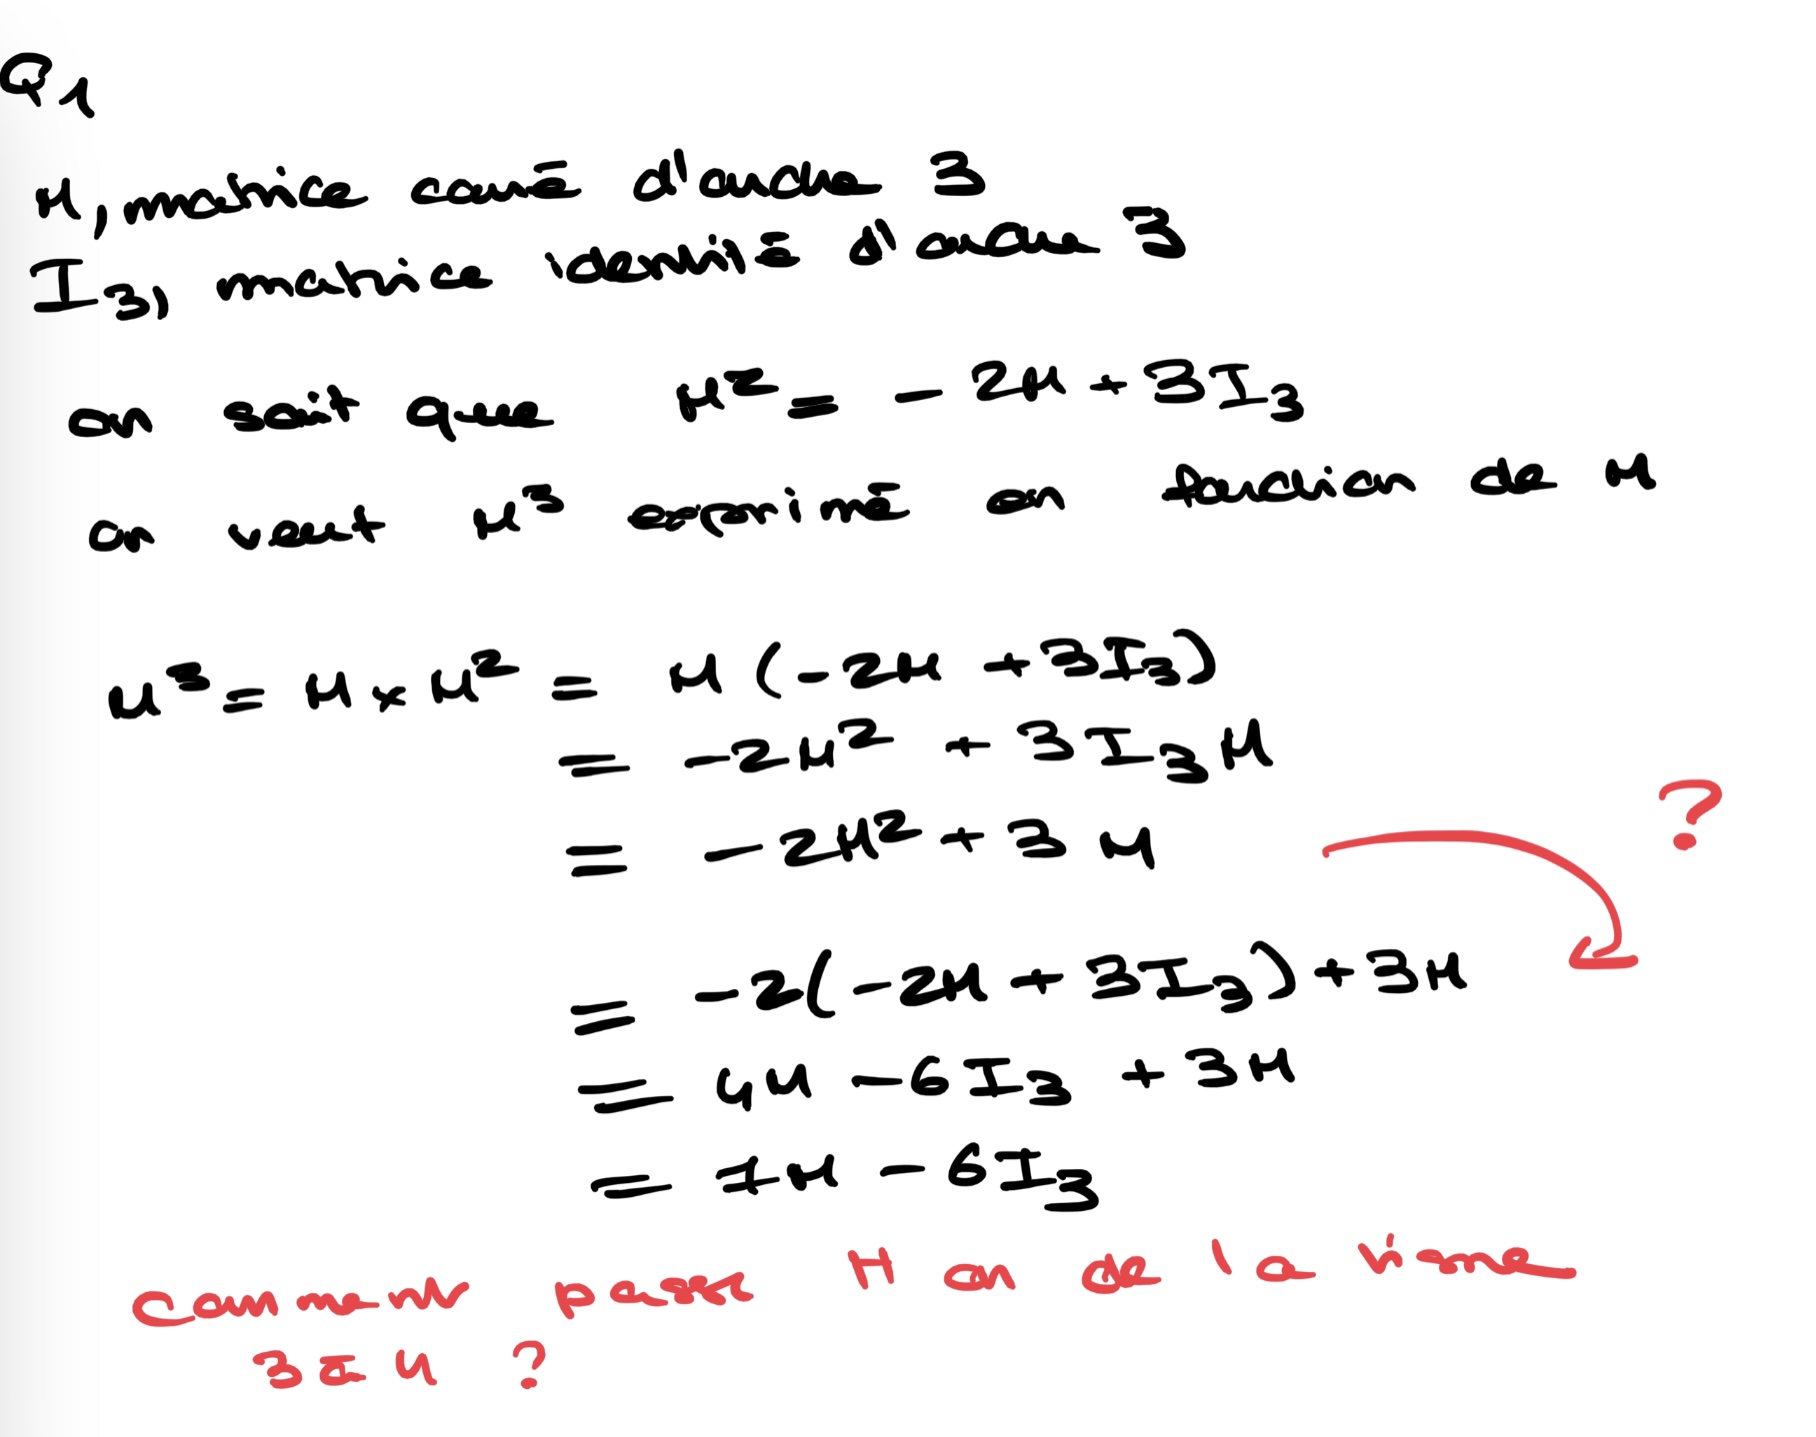 Q1
M, matrice carré d'ordre 3
I₃, matrice identité d'ordre 3
on sait que M² = - 2M + 3I₃
on veut M³ exprimé en fonction de M
M³ = M × M² = M (-2M + 3I₃)
= -2M² + 3I₃M
= -2M² + 3M
?
= -2(-2M + 3I₃) + 3M
= 4M - 6I₃ + 3M
= 7M - 6I₃
comment passe M on de la
3 à 4 ?